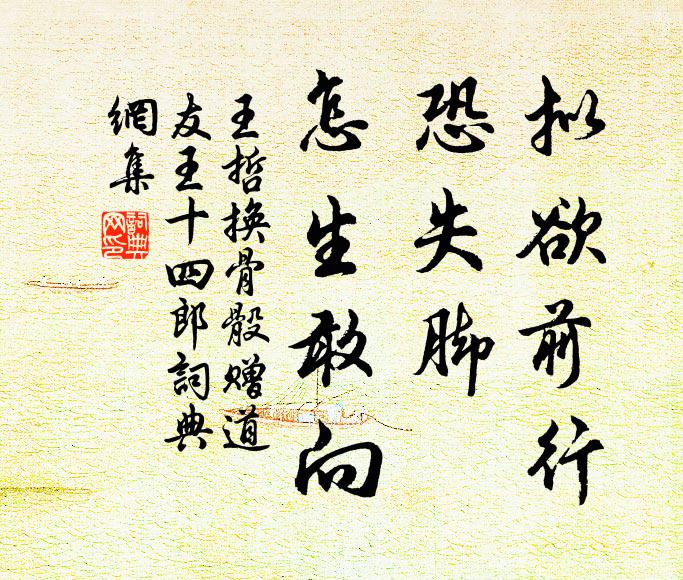 拟欲前行
恐失脚
怎生敢向
王哲換骨骰赠道
友王十四郎詞典
網集
詞典
网印